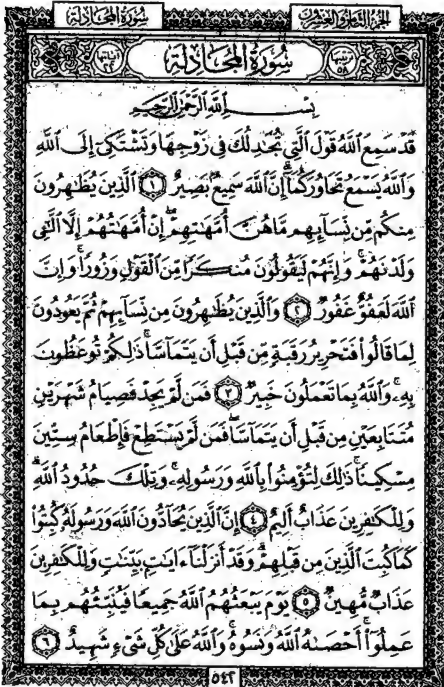 الجُزْءُ الثَّامِنُ وَالعِشْرُونَ سُورَةُ المُجَادلَة
ترتيبها ٥٨ سُورَةُ المُجَادلَة آياتها ٢٢
بِسْمِ ٱللَّهِ ٱلرَّحْمَٰنِ ٱلرَّحِيمِ
قَدْ سَمِعَ ٱللَّهُ قَوْلَ ٱلَّتِى تُجَٰدِلُكَ فِى زَوْجِهَا وَتَشْتَكِىٓ إِلَى ٱللَّهِ
وَٱللَّهُ يَسْمَعُ تَحَاوُرَكُمَآ ۚ إِنَّ ٱللَّهَ سَمِيعٌۢ بَصِيرٌ ١ ٱلَّذِينَ يُظَٰهِرُونَ
مِنكُم مِّن نِّسَآئِهِم مَّا هُنَّ أُمَّهَٰتِهِمْ ۖ إِنْ أُمَّهَٰتُهُمْ إِلَّا ٱلَّٰٓـِٔى
وَلَدْنَهُمْ ۚ وَإِنَّهُمْ لَيَقُولُونَ مُنكَرًا مِّنَ ٱلْقَوْلِ وَزُورًا ۚ وَإِنَّ
ٱللَّهَ لَعَفُوٌّ غَفُورٌ ٢ وَٱلَّذِينَ يُظَٰهِرُونَ مِن نِّسَآئِهِمْ ثُمَّ يَعُودُونَ
لِمَا قَالُوا۟ فَتَحْرِيرُ رَقَبَةٍ مِّن قَبْلِ أَن يَتَمَآسَّا ۚ ذَٰلِكُمْ تُوعَظُونَ
بِهِۦ ۚ وَٱللَّهُ بِمَا تَعْمَلُونَ خَبِيرٌ ٣ فَمَن لَّمْ يَجِدْ فَصِيَامُ شَهْرَيْنِ
مُتَتَابِعَيْنِ مِن قَبْلِ أَن يَتَمَآسَّا ۖ فَمَن لَّمْ يَسْتَطِعْ فَإِطْعَامُ سِتِّينَ
مِسْكِينًا ۚ ذَٰلِكَ لِتُؤْمِنُوا۟ بِٱللَّهِ وَرَسُولِهِۦ ۚ وَتِلْكَ حُدُودُ ٱللَّهِ ۗ
وَلِلْكَٰفِرِينَ عَذَابٌ أَلِيمٌ ٤ إِنَّ ٱلَّذِينَ يُحَآدُّونَ ٱللَّهَ وَرَسُولَهُۥ كُبِتُوا۟
كَمَا كُبِتَ ٱلَّذِينَ مِن قَبْلِهِمْ ۚ وَقَدْ أَنزَلْنَآ ءَايَٰتٍۭ بَيِّنَٰتٍ ۚ وَلِلْكَٰفِرِينَ
عَذَابٌ مُّهِينٌ ٥ يَوْمَ يَبْعَثُهُمُ ٱللَّهُ جَمِيعًا فَيُنَبِّئُهُم بِمَا
عَمِلُوٓا۟ ۚ أَحْصَىٰهُ ٱللَّهُ وَنَسُوهُ ۚ وَٱللَّهُ عَلَىٰ كُلِّ شَىْءٍ شَهِيدٌ ٦
٥٤٢